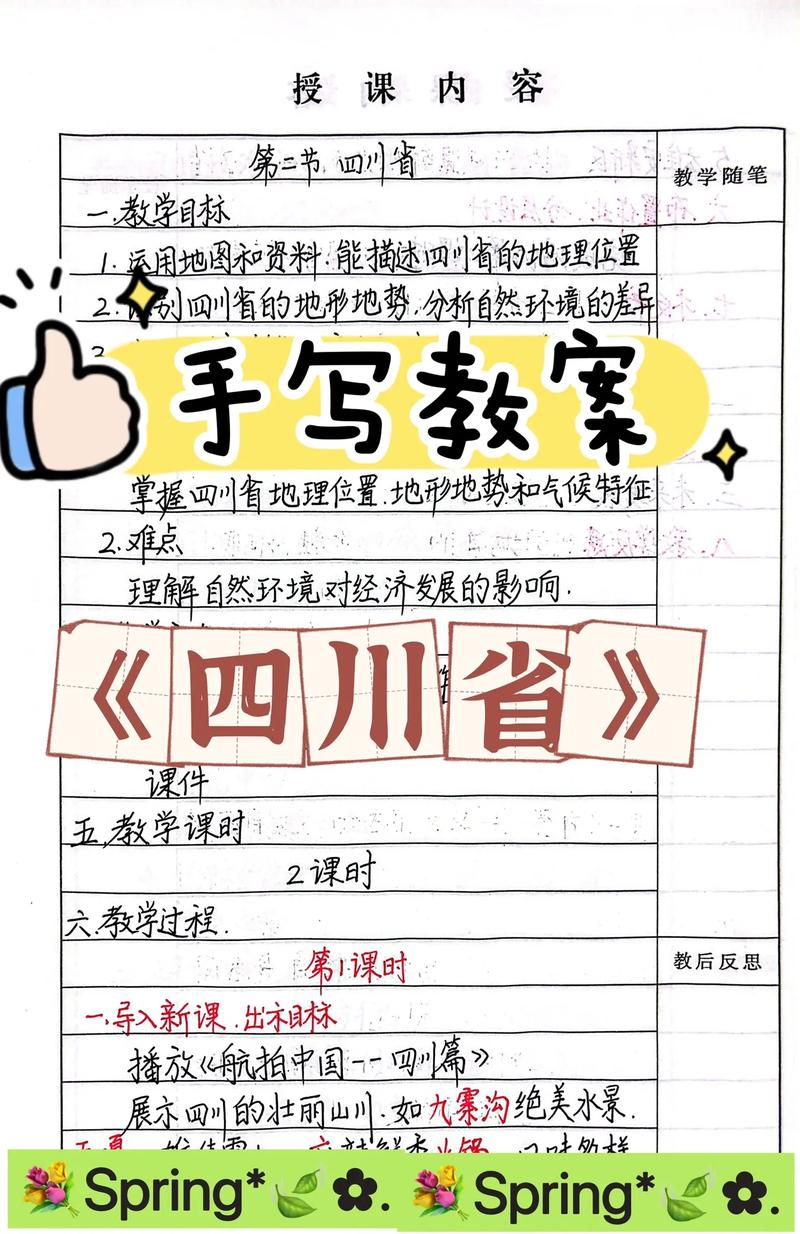 授课内容
第二节 四川省
教学随笔
一.教学目标
1.运用地图和资料.能描述四川省的地理位置
2.别四川省的地形地势.分析自然环境的差异
3.
手写教案
掌握四川省地理位置.地形地势和气候特征
2.难点
理解自然环境对经济发展的影响.
《四川省》
课件
五.教学课时
2课时
六.教学过程.
教后反思
第1课时
一.导入新课.出示目标
播放《航拍中国--四川篇》
展示四川的壮丽山川.如九寨沟绝美水景.
Spring* Spring*